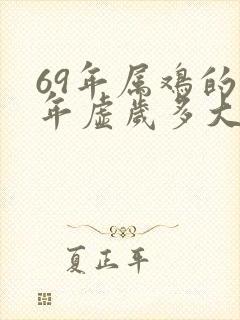 69年属鸡的
年虚岁多大
夏正平